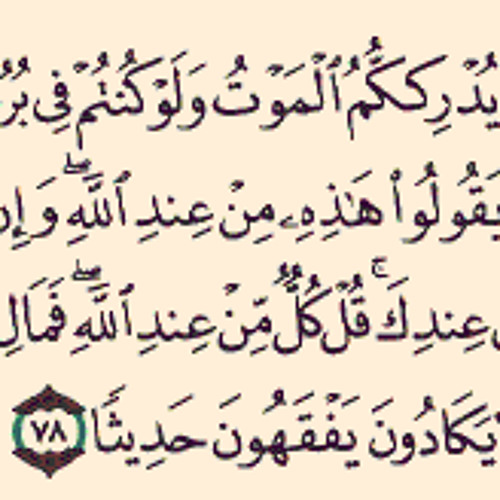 يُدْرِككُّمُ ٱلْمَوْتُ وَلَوْ كُنتُمْ فِى
يَقُولُوا۟ هَـٰذِهِۦ مِنْ عِندِ ٱللَّهِ ۖ وَإِن
عِندِكَ ۚ قُلْ كُلٌّ مِّنْ عِندِ ٱللَّهِ ۖ فَمَالِ
يَكَادُونَ يَفْقَهُونَ حَدِيثًا ٧٨